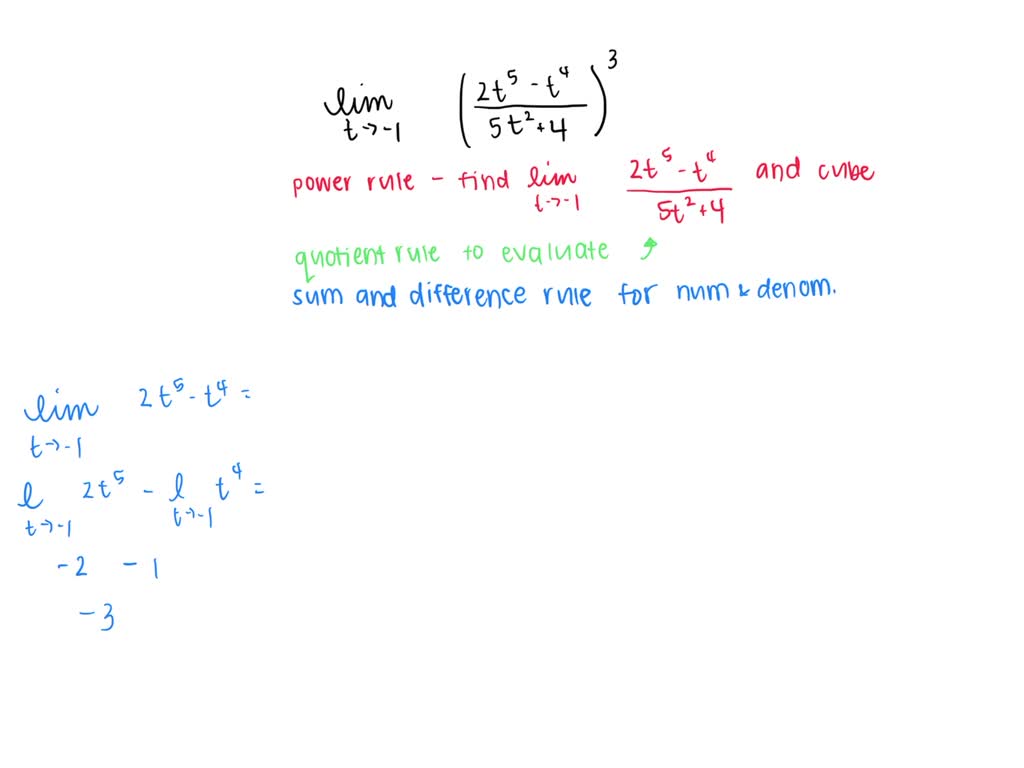 lim t→-1 (2t⁵ - t⁴ / 5t² + 4)³
power rule - find lim t→-1 2t⁵ - t⁴ / 5t² + 4 and cube
quotient rule to evaluate ↗
sum and difference rule for num & denom.
lim t→-1 2t⁵ - t⁴ =
l t→-1 2t⁵ - l t→-1 t⁴ =
-2 - 1
-3